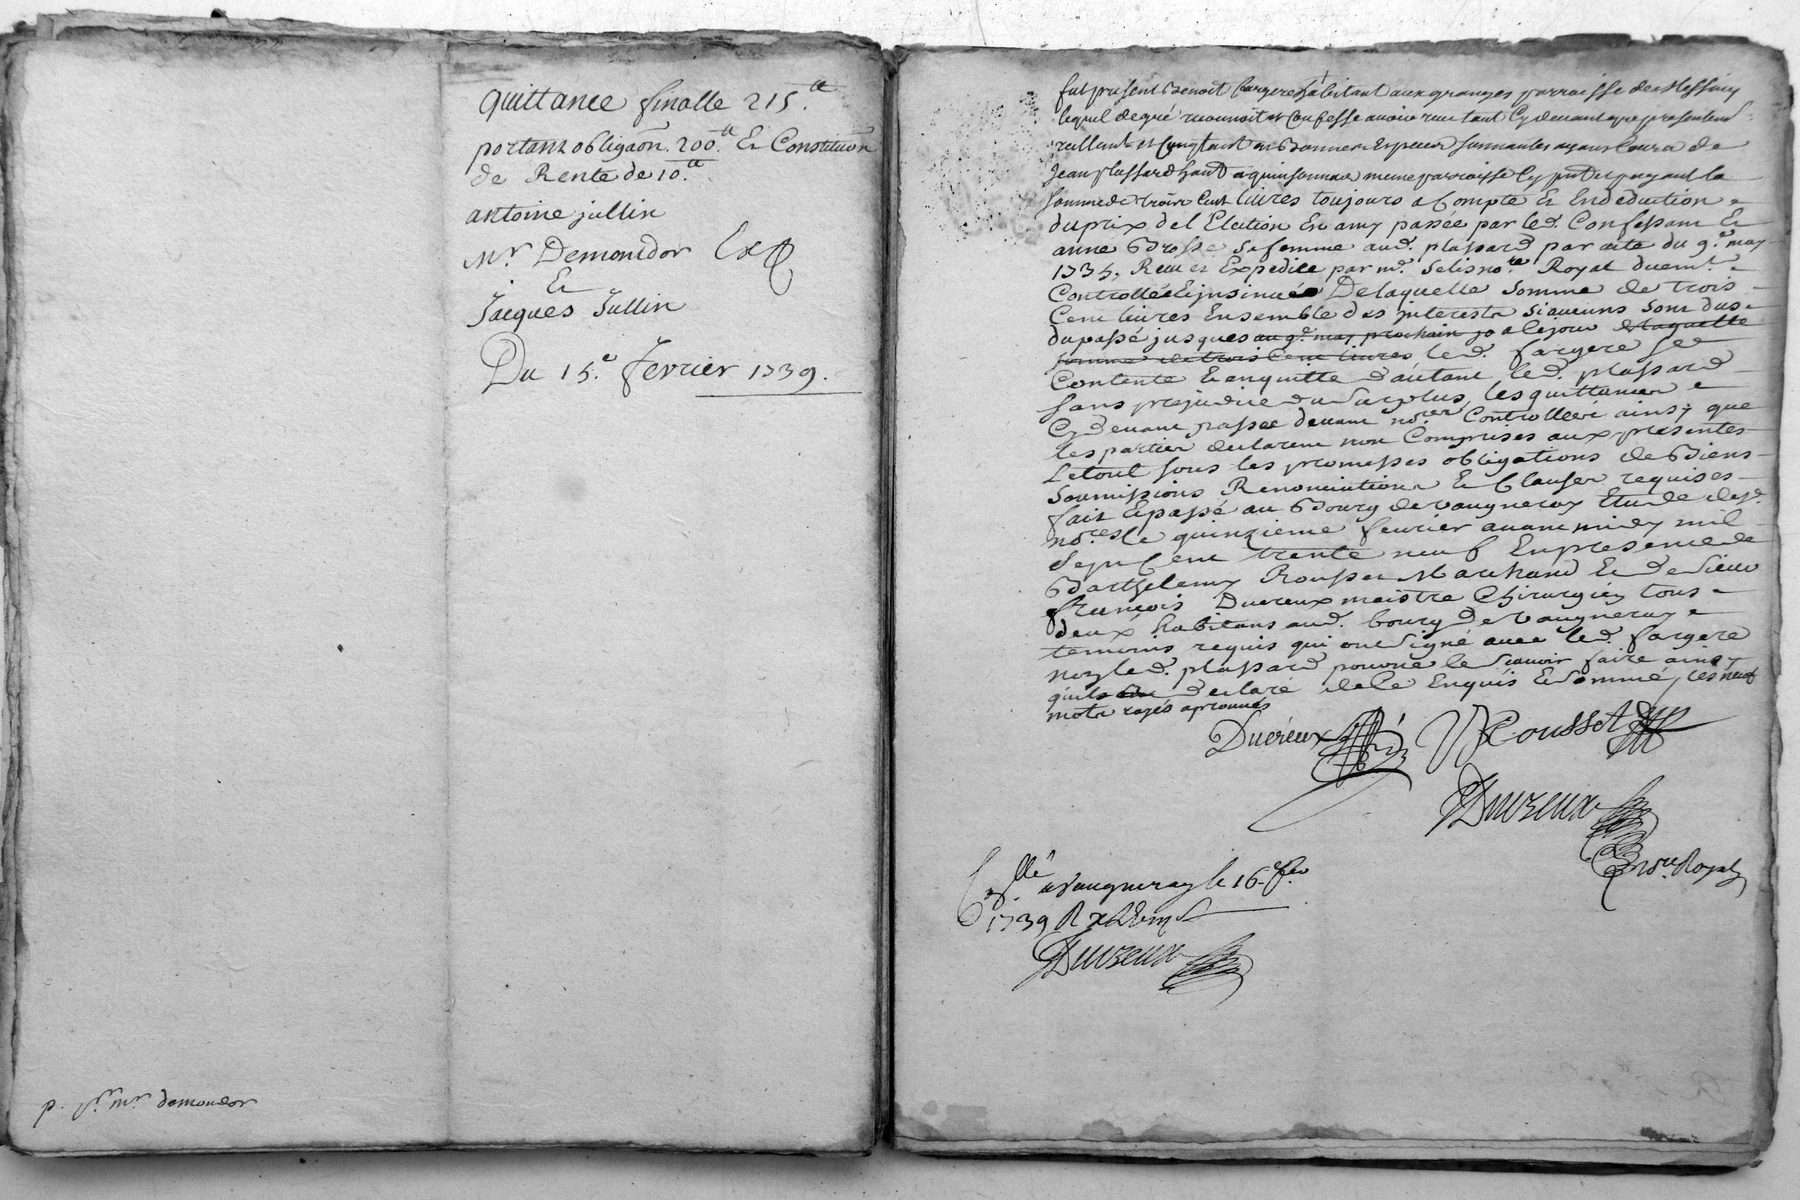 quittance finalle 215.ᵗᵗ
portant obligãon. 200.ᵗᵗ Et Constitution
de Rente de 10.ᵗᵗ
antoine jullin
Mʳ Demontdor Exp
Et
Jacques Jullin
Du 15.ᵉ fevrier 1739.
p. sʳ. mʳ demondor
fut présent Benoit fargere habitant aux granges parroisse de Messimy
lequel de gré reconnoit et Confesse avoir reçu tant Cy devant que presentem.
reellemt. et Comptant en Bonnes Especes sonnantes ayant Cours de
Jean plassard habitt. a quinsonnas meme parroisse Cy pnt. et payant la
somme de trois Cent livres toujours a Compte Et En deduction
du prix de l'Election En amy passée par led. Confessant Et
anne Brosse sa femme aud. plassard par acte du 9.ᵉ may
1735. Reçu et Expedice par mᵉ. Selis noʳᵉ Royal duemᵗ.
Controllée Et insinuée De laquelle somme de trois
Cent livres Ensemble des interests si aucuns sont dus
du passé jusques au 9ᵉ. may prochain jo a ce jour de laquelle
somme de trois Cent livres led. fargere se
Contente Et en quitte d'autant led. plassard
sans prejudice du surplus, les quittances
Cy devant passée devant noʳᵉˢ Controllée ainsy que
les parties declarent non Comprises aux presentes
Le tout sous les promesses obligations de Biens
Soumissions Renonciations Et Clauses requises
fait Et passé au Bourg de vaugneray Etude desd.
noʳᵉˢ le quinzieme fevrier avant midy mil
sept Cent trente neuf En presence de
Barthelemy Rousset Marchand Et de sieur
françois Ducreux maistre Chirurgien tous
deux habitans aud. bourg de vaugneray
temoins requis qui ont signé avec led. fargere
non led. plassard pour ne le scavoir faire ainsy
qu'il a declaré de ce Enquis Et sommé, les neuf
mots rayés aprouvés
Ducreux Rousset
Ducreux
noʳᵉ Royal
Conˡˡᵉ a Vaugneray le 16ᵉ fev.
1739 R
Ducreux